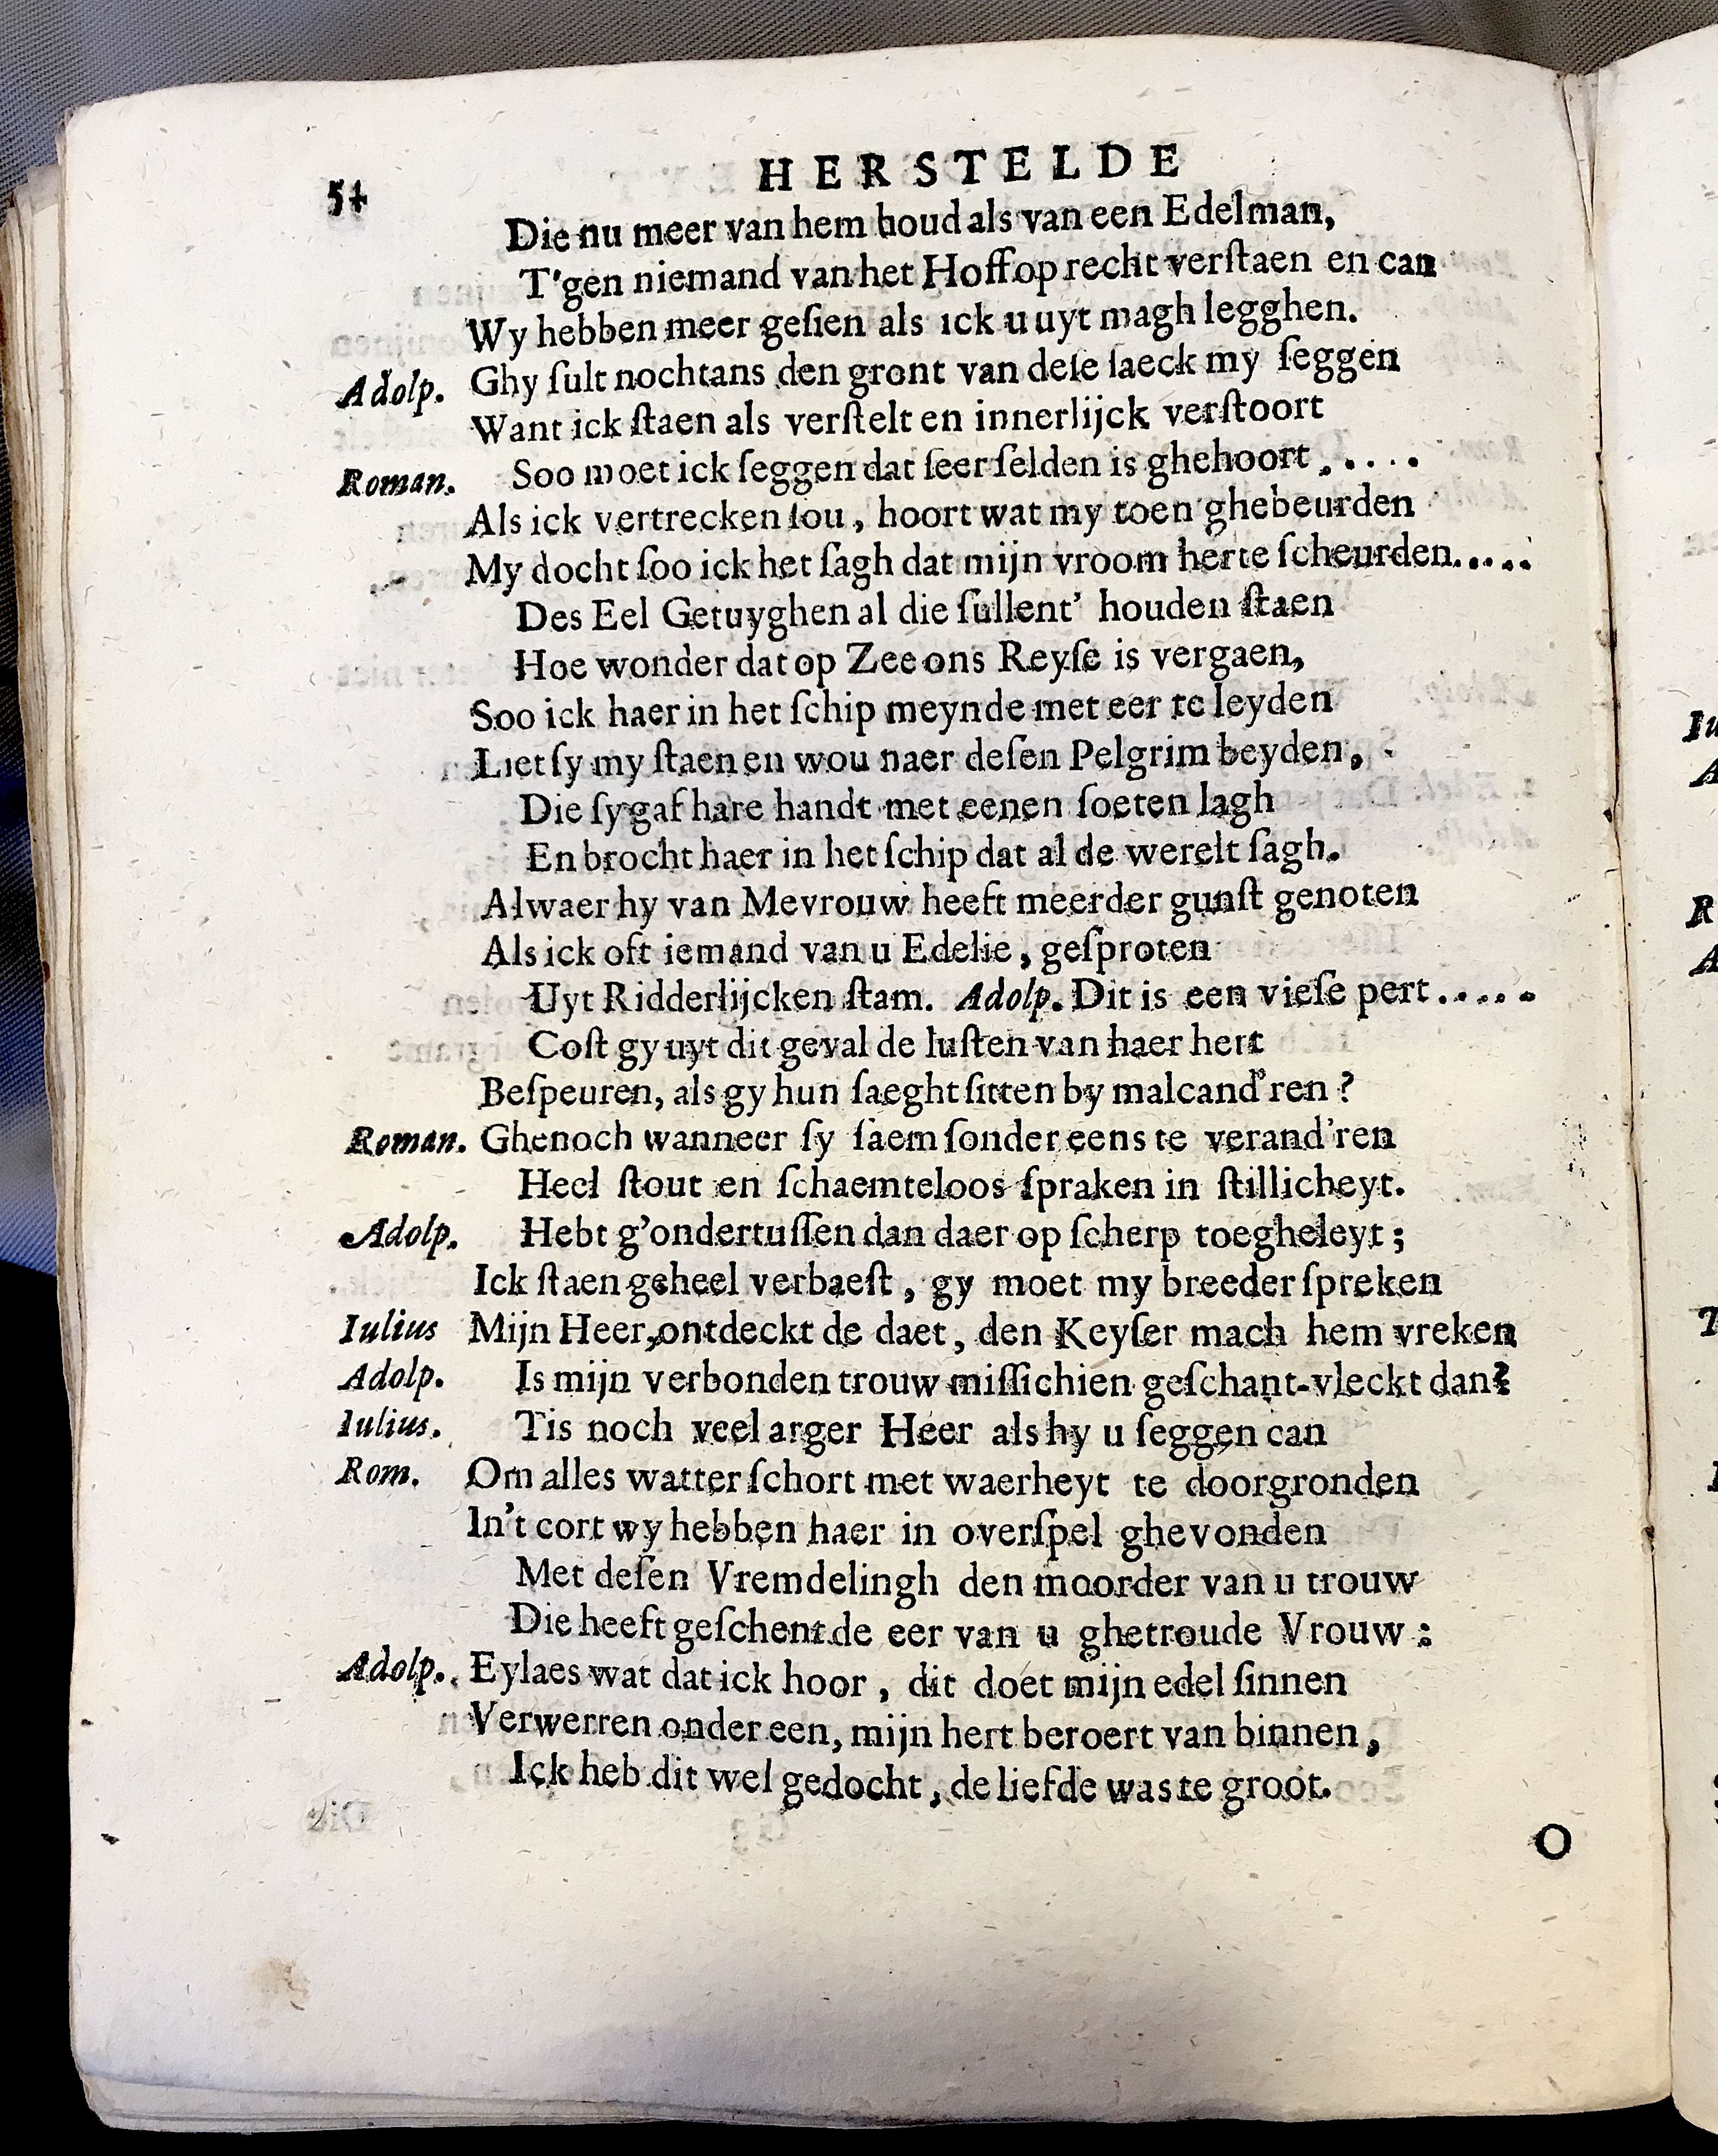 54 HERSTELDE
Die nu meer van hem houd als van een Edelman,
T'gen niemand van het Hoff oprecht verſtaen en can
Wy hebben meer geſien als ick u uyt magh legghen.
Adolp. Ghy ſult nochtans den gront van deſe ſaeck my ſeggen
Want ick ſtaen als verſtelt en innerlijck verſtoort
Roman. Soo moet ick ſeggen dat ſeer ſelden is ghehoort.....
Als ick vertrecken ſou, hoort wat my toen ghebeurden
My docht ſoo ick het ſagh dat mijn vroom herte ſcheurden.....
Des Eel Getuyghen al die ſullent' houden ſtaen
Hoe wonder dat op Zee ons Reyſe is vergaen,
Soo ick haer in het ſchip meynde met eer te leyden
Liet ſy my ſtaen en wou naer deſen Pelgrim beyden,
Die ſy gaf hare handt met eenen ſoeten lagh
En brocht haer in het ſchip dat al de werelt ſagh.
Alwaer hy van Mevrouw heeft meerder gunſt genoten
Als ick oft iemand van u Edelie, geſproten
Uyt Ridderlijcken ſtam. Adolp. Dit is een vieſe pert.....
Coſt gy uyt dit geval de luſten van haer hert
Beſpeuren, als gy hun ſaeght ſitten by malcand'ren?
Roman. Ghenoch wanneer ſy ſaem ſonder eens te verand'ren
Heel ſtout en ſchaemteloos ſpraken in ſtillicheyt.
Adolp. Hebt g'ondertuſſen dan daer op ſcherp toegheleyt;
Ick ſtaen geheel verbaeſt, gy moet my breeder ſpreken
Iulius Mijn Heer, ontdeckt de daet, den Keyſer mach hem vreken
Adolp. Is mijn verbonden trouw miſſichien geſchant-vleckt dan?
Iulius. Tis noch veel arger Heer als hy u ſeggen can
Rom. Om alles watter ſchort met waerheyt te doorgronden
In't cort wy hebben haer in overſpel ghevonden
Met deſen Vremdelingh den moorder van u trouw
Die heeft geſchent de eer van u ghetroude Vrouw:
Adolp. Eylaes wat dat ick hoor, dit doet mijn edel ſinnen
Verwerren onder een, mijn hert beroert van binnen,
Ick heb dit wel gedocht, de liefde was te groot.
O